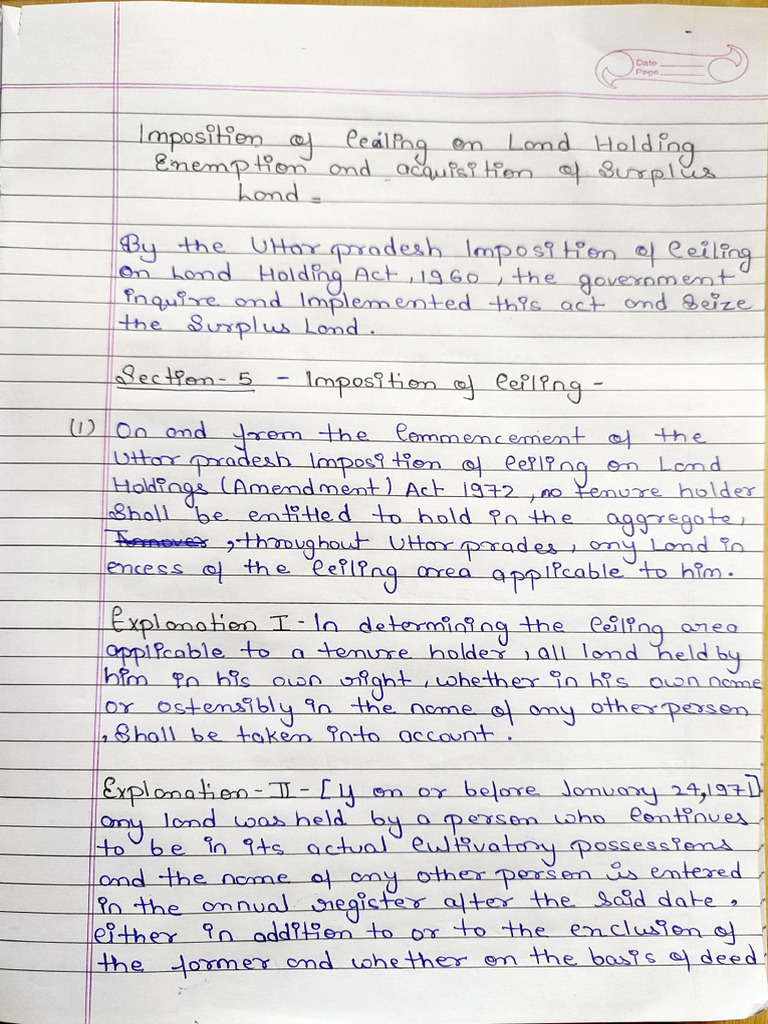 Date
Page
Imposition of Ceiling on Land Holding
Exemption and acquisition of Surplus
Land =
By the Uttar pradesh Imposition of Ceiling
on Land Holding Act, 1960, the government
inquire and Implemented this act and Seize
the Surplus Land.
Section-5 - Imposition of Ceiling -
(1) On and from the Commencement of the
Uttar pradesh Imposition of Ceiling on Land
Holdings (Amendment) Act 1972, no tenure holder
Shall be entitled to hold in the aggregate,
, throughout Uttar prades, any Land in
excess of the Ceiling area applicable to him.
Explanation I - In determining the Ceiling area
applicable to a tenure holder, all land held by
him in his own right, whether in his own name
or ostensibly in the name of any other person
, Shall be taken into account.
Explanation - II - [If on or before January 24, 1971]
any land was held by a person who Continues
to be in its actual Cultivatory possessions
and the name of any other person is entered
in the annual register after the said date,
either in addition to or to the exclusion of
the former and whether on the basis of deed